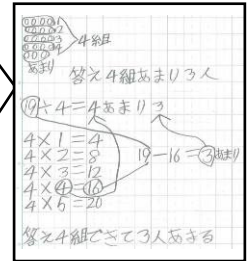 1
2
3
4
4組
あまり
答え4組あまり3人
19÷4=4あまり3
4×1=4
4×2=8
4×3=12
4×4=16
4×5=20
19-16=3あまり
答え4組できて3人あまる